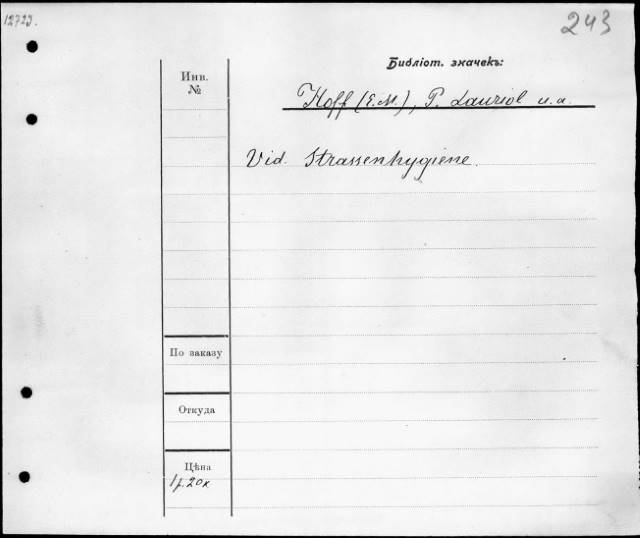 12723.
243
Библіот. значекъ:
Инв.
№
Hoff (E.M.), P. Lauriol u. a.
Vid. Strassenhygiene.
По заказу
Откуда
Цѣна
1 р. 20 к